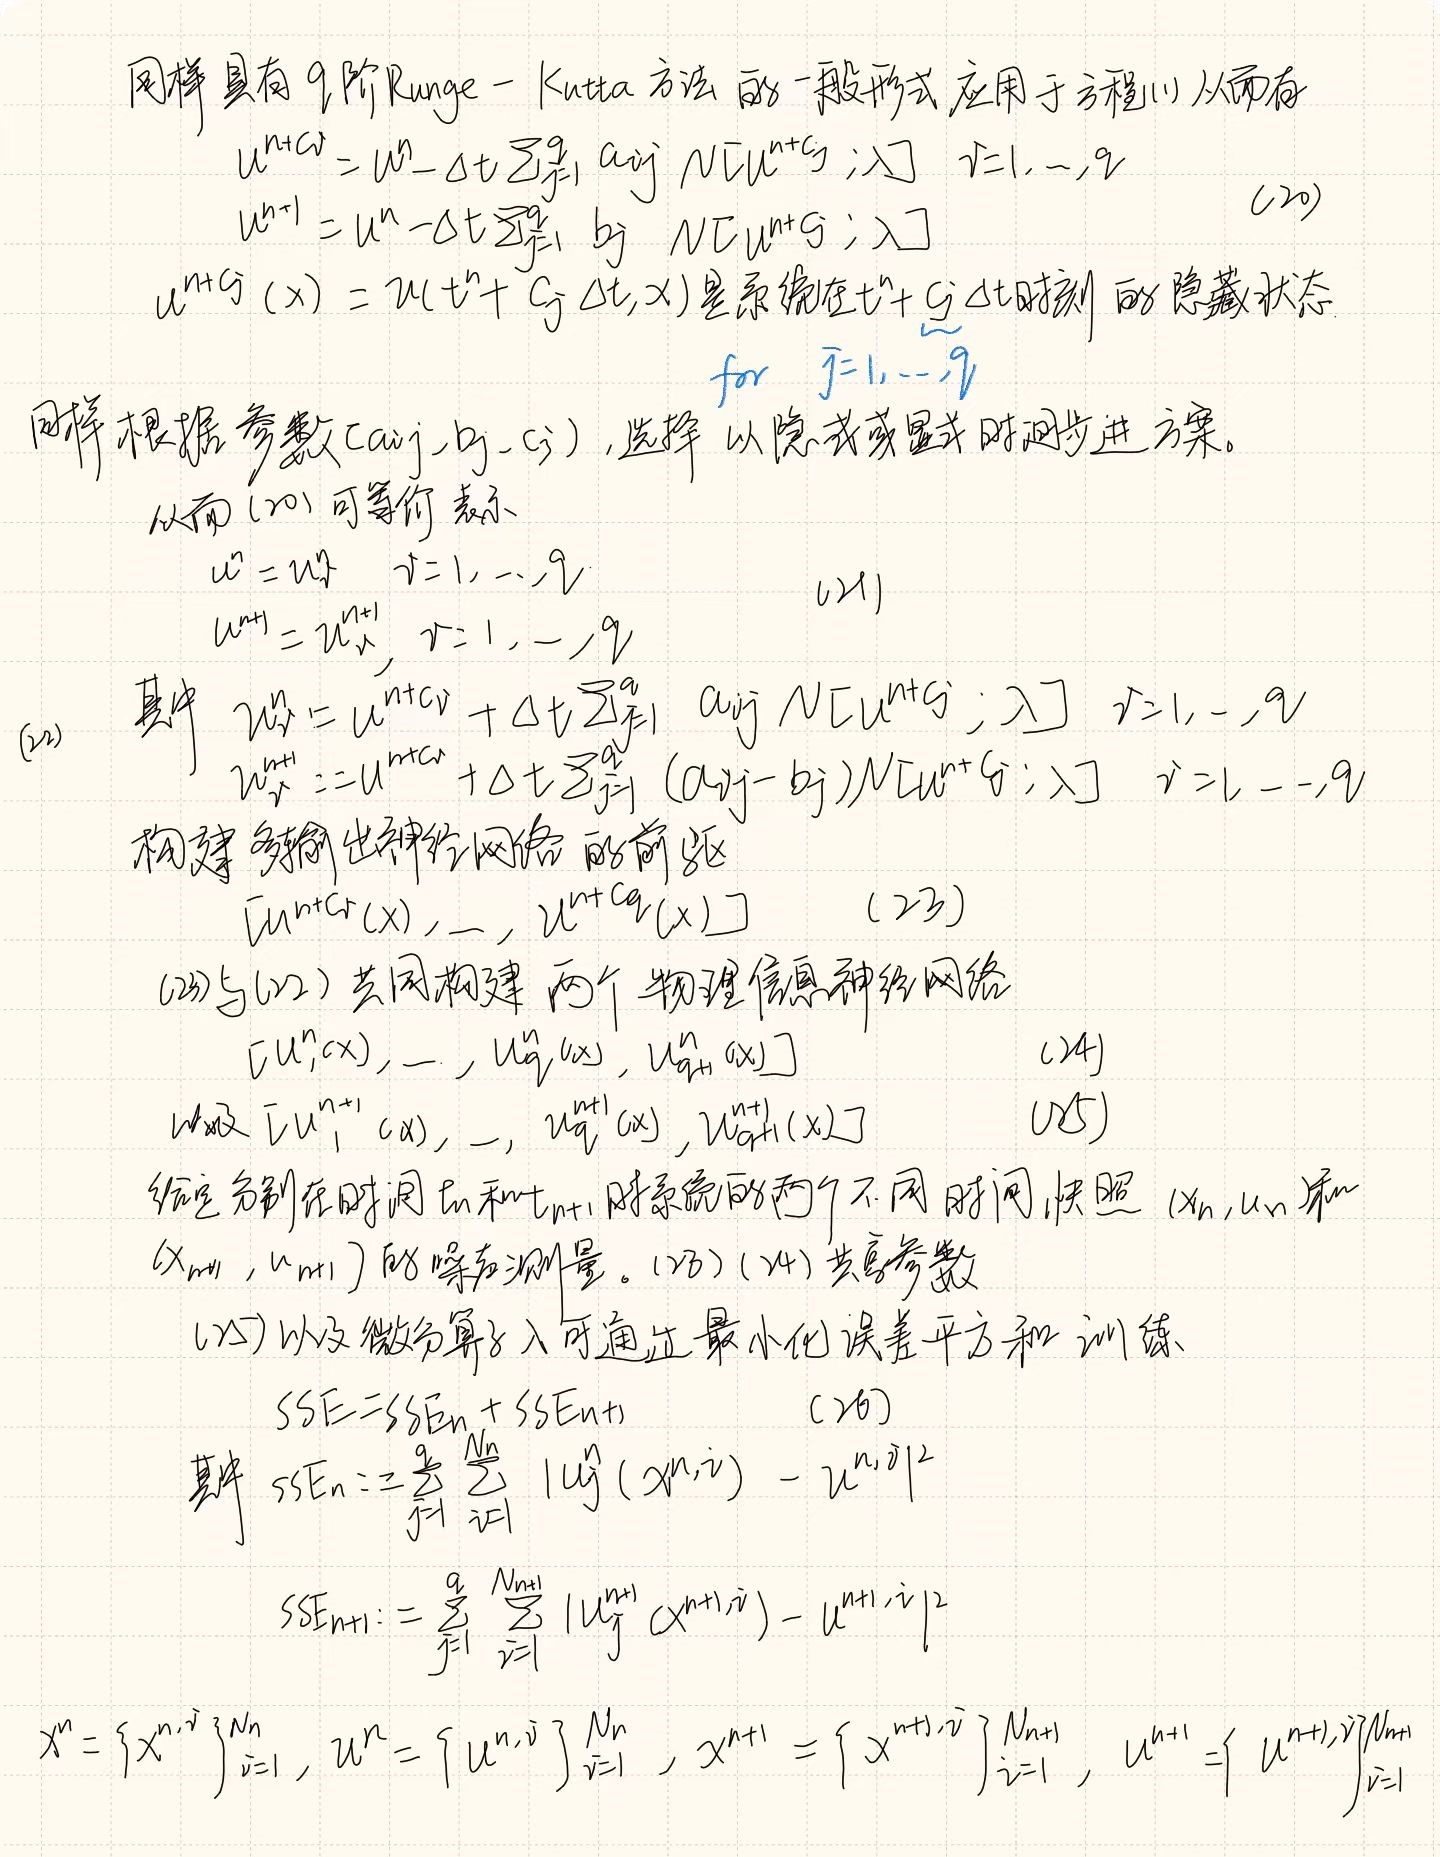 同样具有q阶Runge-Kutta方法的一般形式应用于方程(1)从而有
u^{n+c_i} = u^n - Δt Σ_{j=1}^q a_{ij} N[u^{n+c_j}; λ] i=1,...,q
(20)
u^{n+1} = u^n - Δt Σ_{j=1}^q b_j N[u^{n+c_j}; λ]
u^{n+c_j}(x) = u(t^n + c_jΔt, x)是系统在t^n + c_jΔt时刻的隐藏状态
for j=1,...,q
同样根据参数(a_{ij}, b_j, c_j),选择以隐式或显式时间步进方案。
从而(20)可等价表示
u^n = u_i^n i=1,...,q
(21)
u^{n+1} = u_i^{n+1}, i=1,...,q
其中 u_i^n := u^{n+c_i} + Δt Σ_{j=1}^q a_{ij} N[u^{n+c_j}; λ] i=1,...,q
(22)
u_i^{n+1} := u^{n+c_i} + Δt Σ_{j=1}^q (a_{ij} - b_j) N[u^{n+c_j}; λ] i=1,...,q
构建多输出神经网络的前驱
[u^{n+c_1}(x), ..., u^{n+c_q}(x)] (23)
(23)与(22)共同构建两个物理信息神经网络
[u_1^n(x), ..., u_q^n(x), u_{q+1}^n(x)] (24)
以及[u_1^{n+1}(x), ..., u_q^{n+1}(x), u_{q+1}^{n+1}(x)] (25)
给定分别在时间t_n和t_{n+1}时系统的两个不同时间快照(x_n, u_n)和
(x_{n+1}, u_{n+1})的噪声测量。(23)(24)共享参数
(25)以及微分算子λ可通过最小化误差平方和训练
SSE = SSE_n + SSE_{n+1} (26)
其中 SSE_n := Σ_{j=1}^q Σ_{i=1}^{N_n} |u_j^n(x^{n,i}) - u^{n,i}|^2
SSE_{n+1} := Σ_{j=1}^q Σ_{i=1}^{N_{n+1}} |u_j^{n+1}(x^{n+1,i}) - u^{n+1,i}|^2
x^n = {x^{n,i}}_{i=1}^{N_n}, u^n = {u^{n,i}}_{i=1}^{N_n}, x^{n+1} = {x^{n+1,i}}_{i=1}^{N_{n+1}}, u^{n+1} = {u^{n+1,i}}_{i=1}^{N_{n+1}}